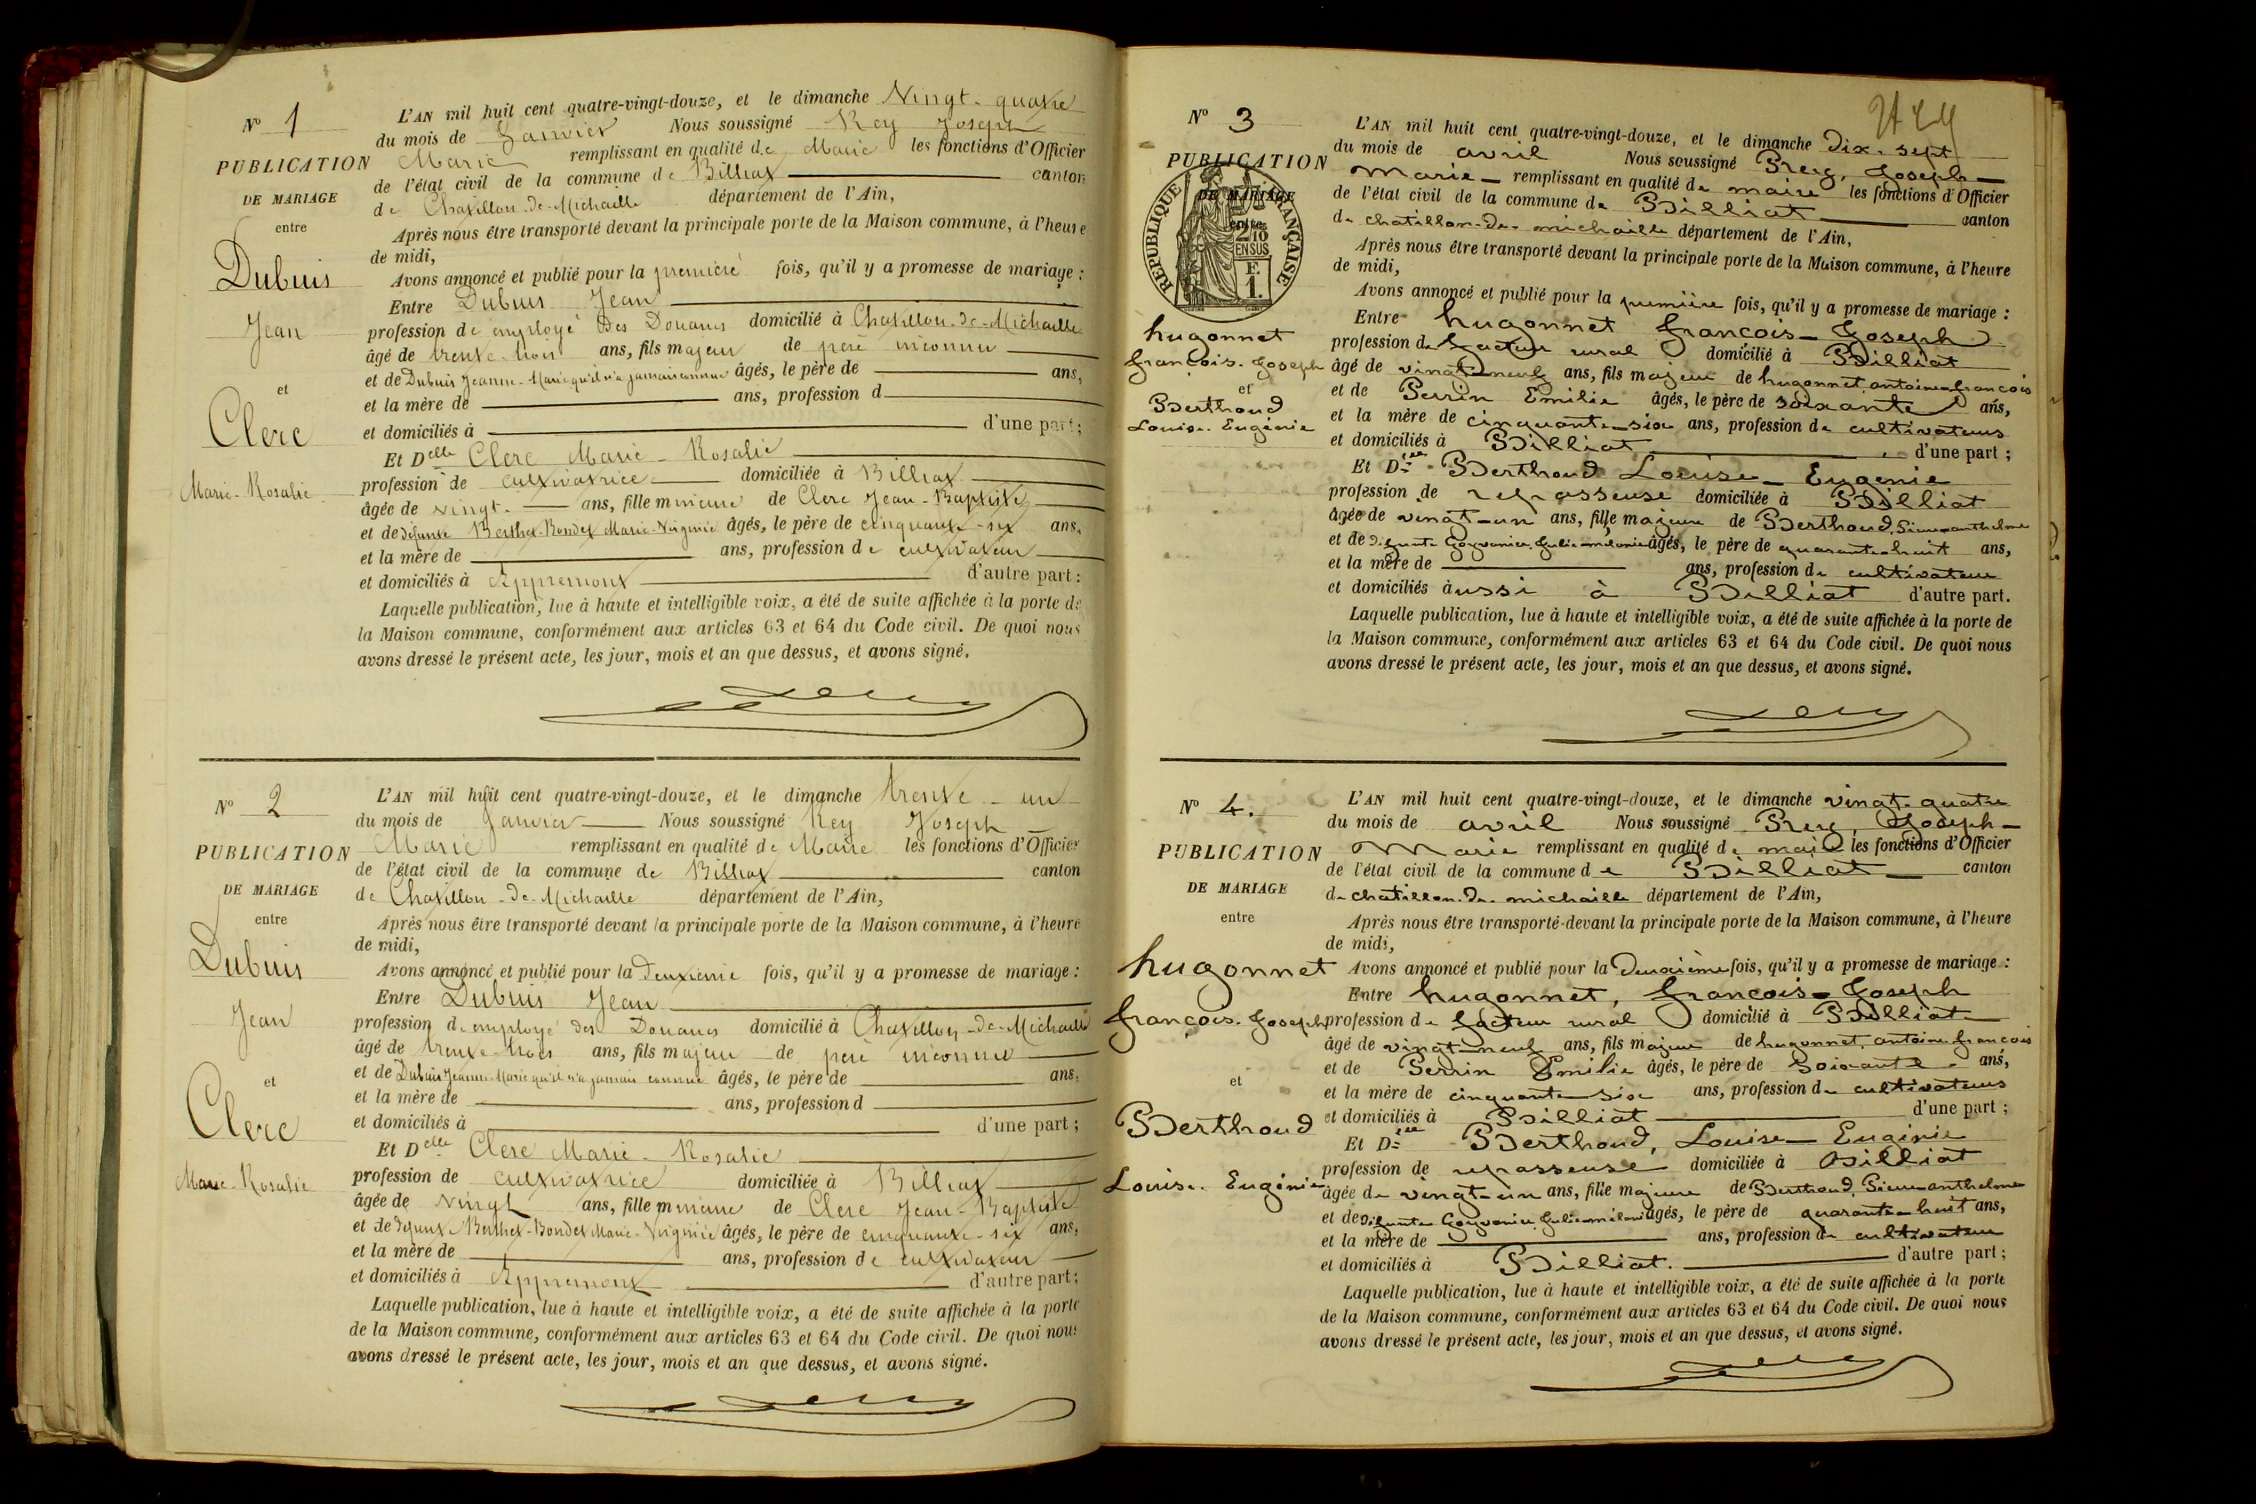 N° 1
PUBLICATION
DE MARIAGE
entre
Dubuis
Jean
et
Clerc
Marie-Rosalie
L'AN mil huit cent quatre-vingt-douze, et le dimanche Vingt-quatre
du mois de Janvier Nous soussigné Rey Joseph
Marie remplissant en qualité de Maire les fonctions d'Officier
de l'état civil de la commune de Billiat canton
de Chatillon-de-Michaille département de l'Ain,
Après nous être transporté devant la principale porte de la Maison commune, à l'heure
de midi,
Avons annoncé et publié pour la première fois, qu'il y a promesse de mariage :
Entre Dubuis Jean
profession de employé des Douanes domicilié à Chatillon-de-Michaille
âgé de trente-trois ans, fils majeur de père inconnu
et de Dubuis Jeanne-Marie qu'il n'a jamais connue âgés, le père de ans,
et la mère de ans, profession d
et domiciliés à d'une part ;
Et Delle Clerc Marie-Rosalie
profession de cultivatrice domiciliée à Billiat
âgée de vingt ans, fille mineure de Clerc Jean-Baptiste
et de défunte Berthet-Bondet Marie-Virginie âgés, le père de cinquante-six ans,
et la mère de ans, profession de cultivateur
et domiciliés à Appremont d'autre part :
Laquelle publication, lue à haute et intelligible voix, a été de suite affichée à la porte de
la Maison commune, conformément aux articles 63 et 64 du Code civil. De quoi nous
avons dressé le présent acte, les jour, mois et an que dessus, et avons signé.
N° 2
PUBLICATION
DE MARIAGE
entre
Dubuis
Jean
et
Clerc
Marie-Rosalie
L'AN mil huit cent quatre-vingt-douze, et le dimanche trente-un
du mois de Janvier Nous soussigné Rey Joseph
Marie remplissant en qualité de Maire les fonctions d'Officier
de l'état civil de la commune de Billiat canton
de Chatillon-de-Michaille département de l'Ain,
Après nous être transporté devant la principale porte de la Maison commune, à l'heure
de midi,
Avons annoncé et publié pour la deuxième fois, qu'il y a promesse de mariage :
Entre Dubuis Jean
profession de employé des Douanes domicilié à Chatillon-de-Michaille
âgé de trente-trois ans, fils majeur de père inconnu
et de Dubuis Jeanne-Marie qu'il n'a jamais connue âgés, le père de ans,
et la mère de ans, profession d
et domiciliés à d'une part ;
Et Delle Clerc Marie-Rosalie
profession de cultivatrice domiciliée à Billiat
âgée de vingt ans, fille mineure de Clerc Jean-Baptiste
et de défunte Berthet-Bondet Marie-Virginie âgés, le père de cinquante-six ans,
et la mère de ans, profession de cultivateur
et domiciliés à Appremont d'autre part ;
Laquelle publication, lue à haute et intelligible voix, a été de suite affichée à la porte
de la Maison commune, conformément aux articles 63 et 64 du Code civil. De quoi nous
avons dressé le présent acte, les jour, mois et an que dessus, et avons signé.
N° 3
PUBLICATION
DE MARIAGE
entre
RÉPUBLIQUE FRANÇAISE
2/10
EN SUS
F.
1.
hugonnet
françois-Joseph
et
Berthoud
Louise-Eugénie
L'AN mil huit cent quatre-vingt-douze, et le dimanche dix-sept
du mois de avril Nous soussigné Rey, Joseph
Marie remplissant en qualité de maire les fonctions d'Officier
de l'état civil de la commune de Billiat canton
de chatillon-de-michaille département de l'Ain,
Après nous être transporté devant la principale porte de la Maison commune, à l'heure
de midi,
Avons annoncé et publié pour la première fois, qu'il y a promesse de mariage :
Entre hugonnet françois-Joseph
profession de facteur rural domicilié à Billiat
âgé de vingt-neuf ans, fils majeur de hugonnet antoine françois
et de Perrin Emilie âgés, le père de soixante ans,
et la mère de cinquante-six ans, profession de cultivateurs
et domiciliés à Billiat d'une part ;
Et Dlle Berthoud Louise-Eugénie
profession de repasseuse domiciliée à Billiat
âgée de vingt-un ans, fille majeure de Berthoud, Pierre-anthelme
et de défunte Julie-mélanie âgés, le père de quarante-huit ans,
et la mère de ans, profession de cultivateur
et domiciliés aussi à Billiat d'autre part.
Laquelle publication, lue à haute et intelligible voix, a été de suite affichée à la porte de
la Maison commune, conformément aux articles 63 et 64 du Code civil. De quoi nous
avons dressé le présent acte, les jour, mois et an que dessus, et avons signé.
N° 4.
PUBLICATION
DE MARIAGE
entre
hugonnet
françois-Joseph
et
Berthoud
Louise-Eugénie
L'AN mil huit cent quatre-vingt-douze, et le dimanche vingt-quatre
du mois de avril Nous soussigné Rey, Joseph-
Marie remplissant en qualité de maire les fonctions d'Officier
de l'état civil de la commune de Billiat canton
de chatillon-de-michaille département de l'Ain,
Après nous être transporté devant la principale porte de la Maison commune, à l'heure
de midi,
Avons annoncé et publié pour la deuxième fois, qu'il y a promesse de mariage :
Entre hugonnet, françois-Joseph
profession de facteur rural domicilié à Billiat
âgé de vingt-neuf ans, fils majeur de hugonnet, antoine françois
et de Perrin Emilie âgés, le père de soixante ans,
et la mère de cinquante six ans, profession de cultivateurs
et domiciliés à Billiat d'une part ;
Et Dlle Berthoud, Louise-Eugénie
profession de repasseuse domiciliée à Billiat
âgée de vingt-un ans, fille majeure de Berthoud, Pierre-anthelme
et de défunte Julie-mélanie âgés, le père de quarante-huit ans,
et la mère de ans, profession de cultivateur
et domiciliés à Billiat. d'autre part ;
Laquelle publication, lue à haute et intelligible voix, a été de suite affichée à la porte
de la Maison commune, conformément aux articles 63 et 64 du Code civil. De quoi nous
avons dressé le présent acte, les jour, mois et an que dessus, et avons signé.